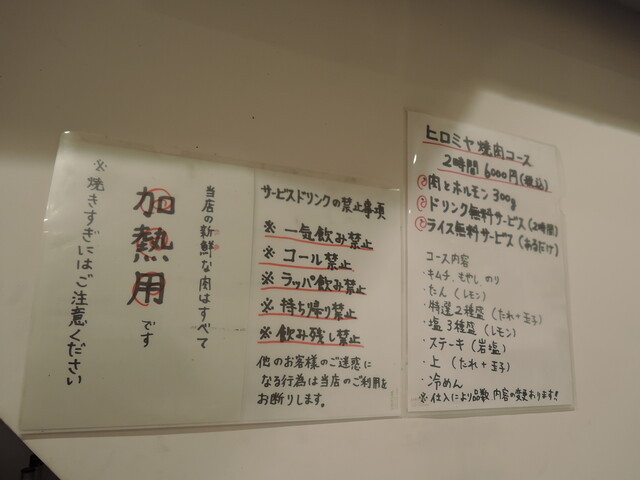 当店の新鮮な肉はすべて
加熱用です
※焼きすぎにはご注意ください
サービスドリンクの禁止事項
※一気飲み禁止
※コール禁止
※ラッパ飲み禁止
※持ち帰り禁止
※飲み残し禁止
他のお客様のご迷惑に
なる行為は当店のご利用を
お断りします。
ヒロミヤ焼肉コース
2時間 6000円(税込)
①肉とホルモン300g
②ドリンク無料サービス(2時間)
③ライス無料サービス(あるだけ)
コース内容
・キムチ、もやし のり
・たん(レモン)
・特選2種盛(たれ+玉子)
・塩3種盛(レモン)
・ステーキ(岩塩)
・上(たれ+玉子)
・冷めん
※仕入により品数、内容の変更あります!